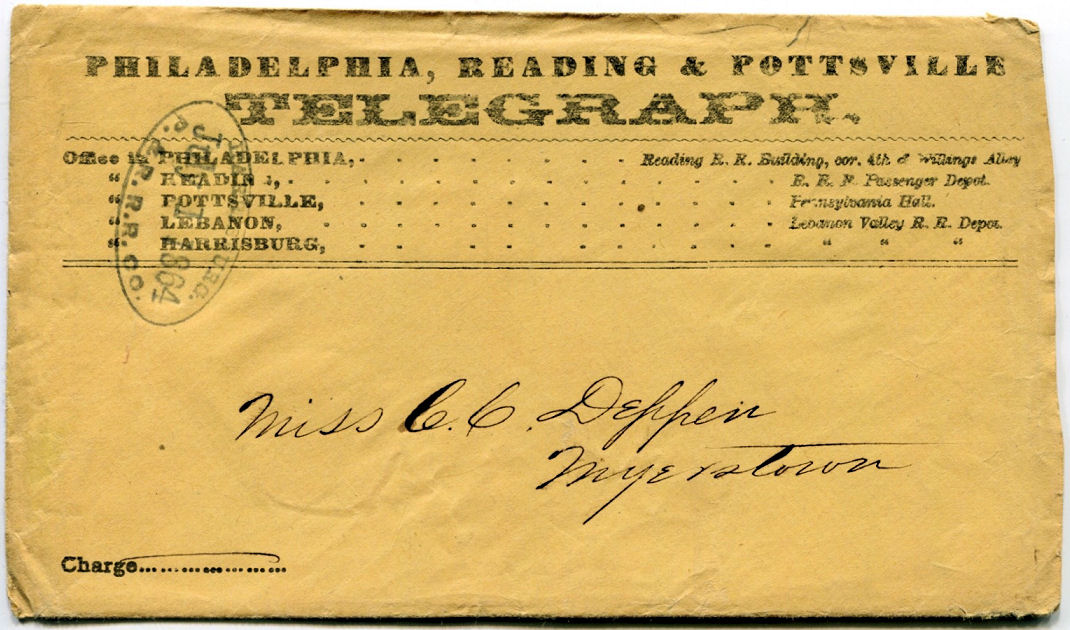 PHILADELPHIA, READING & POTTSVILLE
TELEGRAPH.
Office in PHILADELPHIA, - - - - - - - - Reading R. R. Building, cor. 4th & Willings Alley
" READING, - - - - - - - - - - - R. R. N. Passenger Depot.
" POTTSVILLE, - - - - - - - - - - Pennsylvania Hall.
" LEBANON, - - - - - - - - - - - Lebanon Valley R. R. Depot.
" HARRISBURG, - - - - - - - - - - " " "
P. & R. R. R. CO.
1864
Miss C. C. Deppen
Myerstown
Charge....................